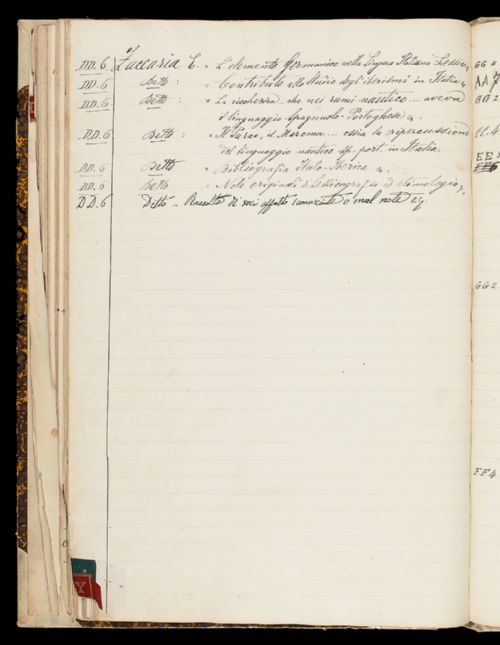 DD. 6 Zuccaria E. " L'elemento germanico nella lingua Italiana
DD. 6 Detto : " Contributo allo Studio degli iberismi in Italia
DD. 6 Detto : " La ricchezza che nei rami nautico ...
il linguaggio Spagnuolo-Portoghese
DD. 6 Detto : " Il ... ossia la ripercussione
del linguaggio nautico sp. port. in Italia.
DD. 6 Detto " Bibliografia Italo-Iberica
DD. 6 Detto " Note originali di Lessicografia ed etimologia
DD. 6 Ditto - Raccolta di voci affatto sconosciute o mal note
GG 2
AA 7
GG 2
CC. 4
EE
GG 2
FF 4